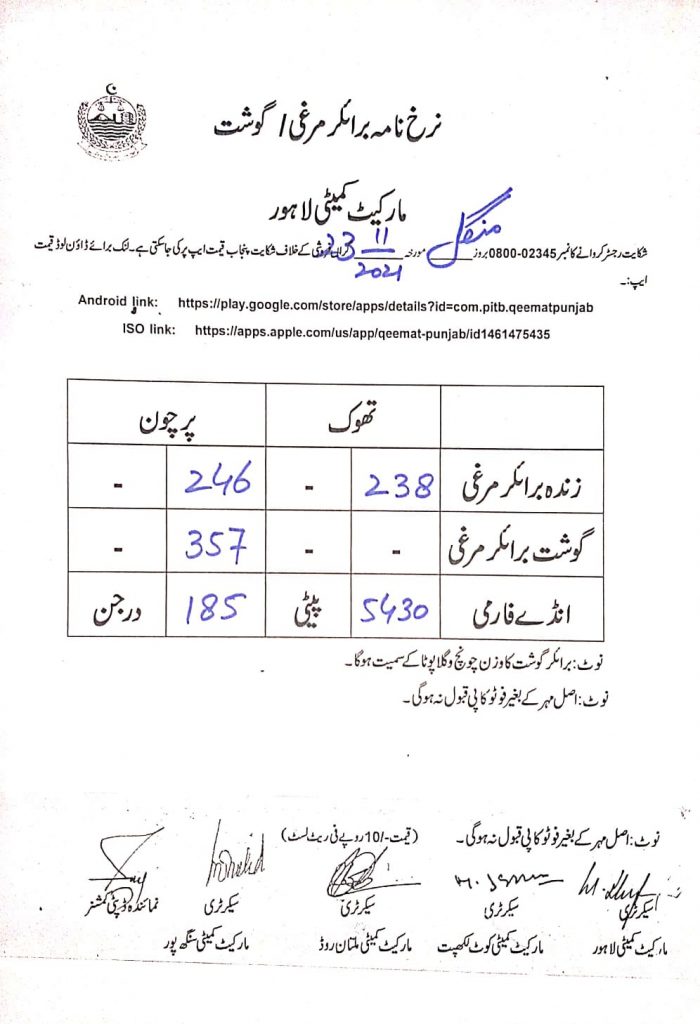 نرخ نامہ برائلر مرغی / گوشت
مارکیٹ کمیٹی لاہور
شکایت رجسٹر کروانے کا نمبر 02345-0800 بروز منگل مورخہ 23 11 2021 گراں فروشی کے خلاف شکایت پنجاب قیمت ایپ پر کی جا سکتی ہے۔ لنک برائے ڈاؤن لوڈ قیمت
ایپ:۔
Android link: https://play.google.com/store/apps/details?id=com.pitb.qeematpunjab
ISO link: https://apps.apple.com/us/app/qeemat-punjab/id1461475435
تھوک پرچون
زندہ برائلر مرغی 238 - 246 -
گوشت برائلر مرغی - - 357 -
انڈے فارمی 5430 پیٹی 185 درجن
نوٹ: برائلر گوشت کا وزن چونچ و گلا پوٹا کے سمیت ہوگا۔
نوٹ: اصل مہر کے بغیر فوٹو کاپی قبول نہ ہوگی۔
نوٹ: اصل مہر کے بغیر فوٹو کاپی قبول نہ ہوگی۔ (قیمت -/10 روپے فی ریٹ لسٹ)
سیکرٹری سیکرٹری سیکرٹری سیکرٹری نمائندہ ڈپٹی کمشنر
مارکیٹ کمیٹی لاہور مارکیٹ کمیٹی کوٹ لکھپت مارکیٹ کمیٹی ملتان روڈ مارکیٹ کمیٹی سنگھ پور